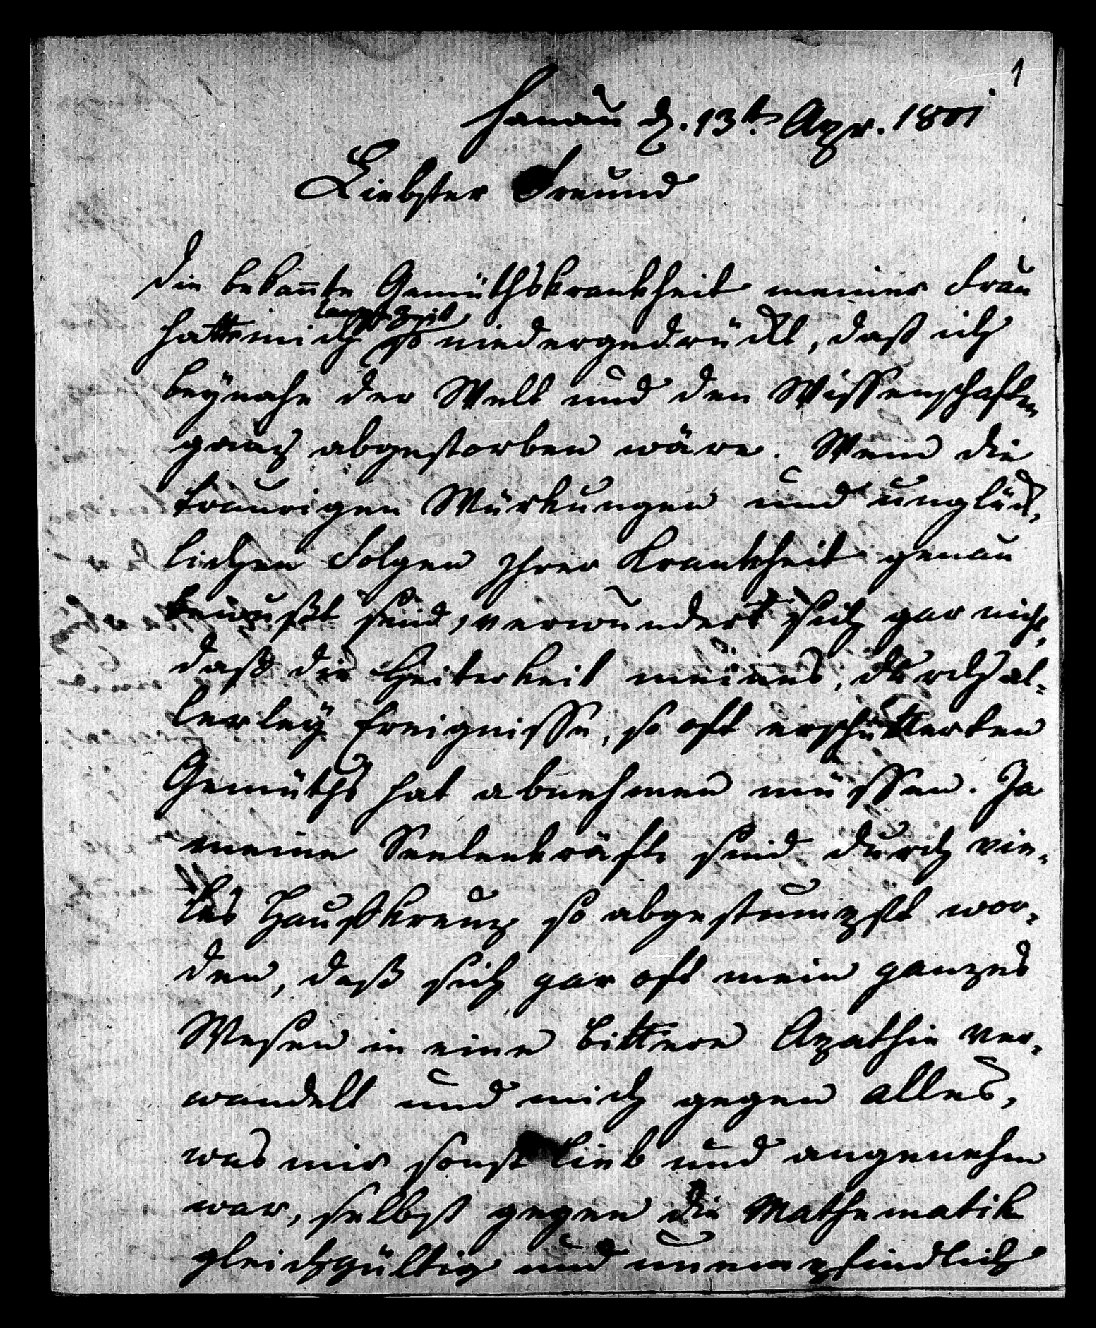 1
Hanau d. 13t. Apr. 1801
Liebster Freund
Die bekannte Gemüthskrankheit meiner Frau
lange Zeit
hatte mich so niedergedrückt, daß ich
beynahe der Welt und den Wissenschaften
ganz abgestorben wäre. Wem die
traurigen Würkungen und unglück,
lichen Folgen Ihrer Krankheit genau
bewußt sind, verwundert sich gar nicht,
daß die Heiterkeit meines, durch al,
lerley Ereignisse, so oft erschütterten
Gemüths hat abnehmen müssen. Ja
meine Seelenkräfte sind durch vie,
les Hauskreuz so abgestumpft wor,
den, daß sich gar oft mein ganzes
Wesen in eine bittere Apathie ver,
wandelt und mich gegen alles,
was mir sonst lieb und angenehm
war, selbst gegen die Mathematik
gleichgültig und unempfindlich